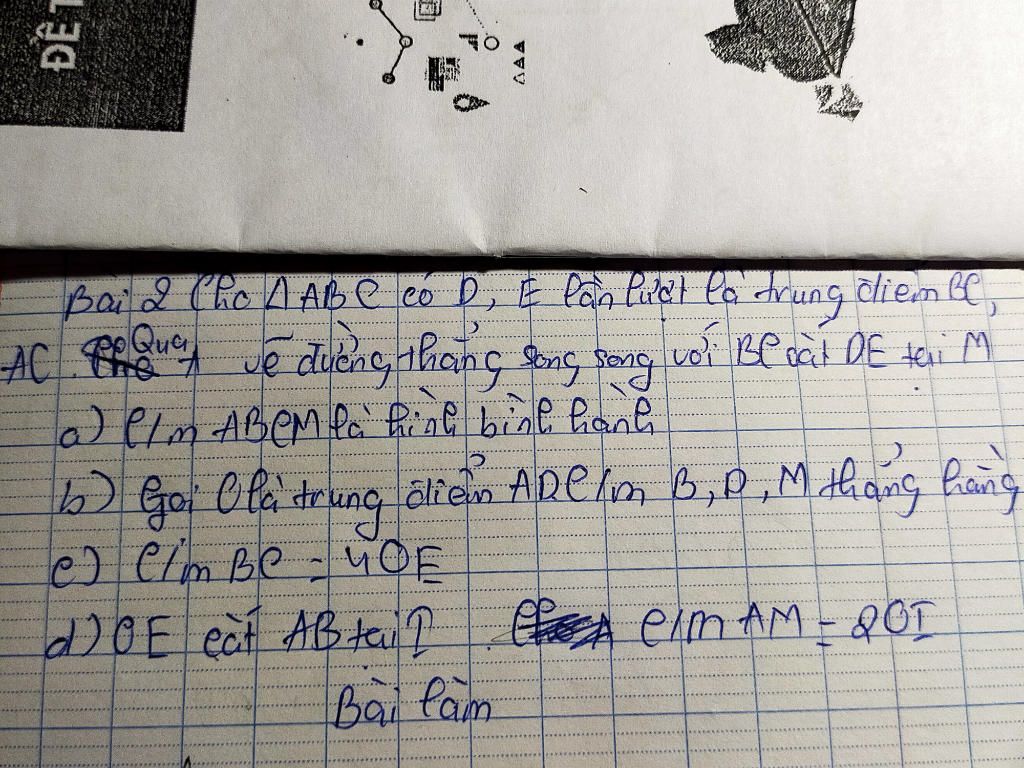 ĐỀ T
Bài 2 Cho ΔABC có D, E lần lượt là trung điểm BC,
AC. Qua A vẽ đường thẳng song song với BC cắt DE tại M
a) C/m ABCM là hình bình hành
b) Gọi O là trung điểm AD C/m B, D, M thẳng hàng
c) C/m BC = 4OE
d) OE cắt AB tại I c/m AM = 2OI
Bài làm